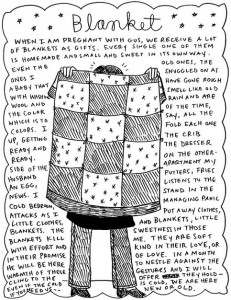 Blanket
WHEN I AM PREGNANT WITH GUS, WE RECEIVE A LOT
OF BLANKETS AS GIFTS. EVERY SINGLE ONE OF THEM
IS HOMEMADE AND SMALL AND SWEET IN ITS OWN WAY.
EVEN THE OLD ONES, THE
ONES I SNUGGLED ON AS
A BABY THAT HAVE GONE ROUGH
WITH WASHING SMELL LIKE OLD
WOOL AND RAIN AND ARE
THE COLOR OF THE TIME,
WHICH IS TO SAY, ALL THE
COLORS. I FOLD EACH ONE
UP, GETTING THE CRIB
READY AND THE DRESSER
READY. ON THE OTHER
SIDE OF THE APARTMENT MY
HUSBAND PUTTERS, FRIES
AN EGG, LISTENS TO THE
NEWS. I STAND IN THE
COLD BEDROOM, MANAGING PANIC
ATTACKS AS I PUT AWAY CLOTHES,
LITTLE CLOTHES, AND BLANKETS, LITTLE
BLANKETS. THE SWEETNESS IN THOSE
BLANKETS KILL ME. THEY ARE SOFT
WITH EFFORT AND KIND IN THEIR LOVE, OR
IN THEIR PROMISE OF LOVE. IN A MONTH
HE WILL BE HERE TO NESTLE AGAINST THE
WARMTH OF THESE GESTURES AND I WILL
CLING TO THE OFFER THEY HOLD—
EVEN IF THE CRIB IS COLD, WE ARE HERE
IF YOU NEED US— NEW OR OLD.